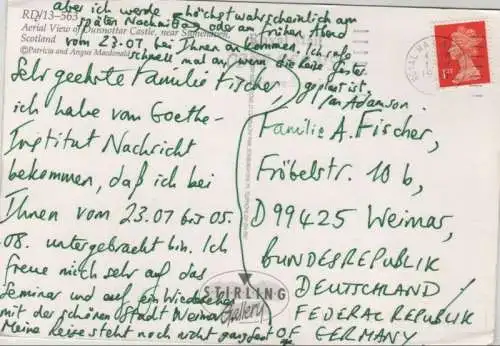 aber ich werde höchstwahrscheinlich am
späten Nachmittag oder am frühen Abend
vom 23.07 bei Ihnen ankommen. Ich rufe
schnell mal an, wenn die Reise fester
geplant ist.
Ian Adamson.
RD/13-563
Aerial View of Dunnottar Castle, near Stonehaven,
Scotland
©Patricia and Angus Macdonald
Sehr geehrte Familie Fischer,
ich habe vom Goethe-
Institut Nachricht
bekommen, daß ich bei
Ihnen vom 23.07 bis 05.
08. untergebracht bin. Ich
freue mich sehr auf das
Seminar und auf ein Wiedersehen
mit der schönen Stadt Weimar.
Meine Reise steht noch nicht ganz fest
STIRLING
Gallery
1ST
Familie A. Fischer,
Fröbelstr. 10 b,
D99425 Weimar,
BUNDESREPUBLIK
DEUTSCHLAND /
FEDERAL REPUBLIK
OF GERMANY